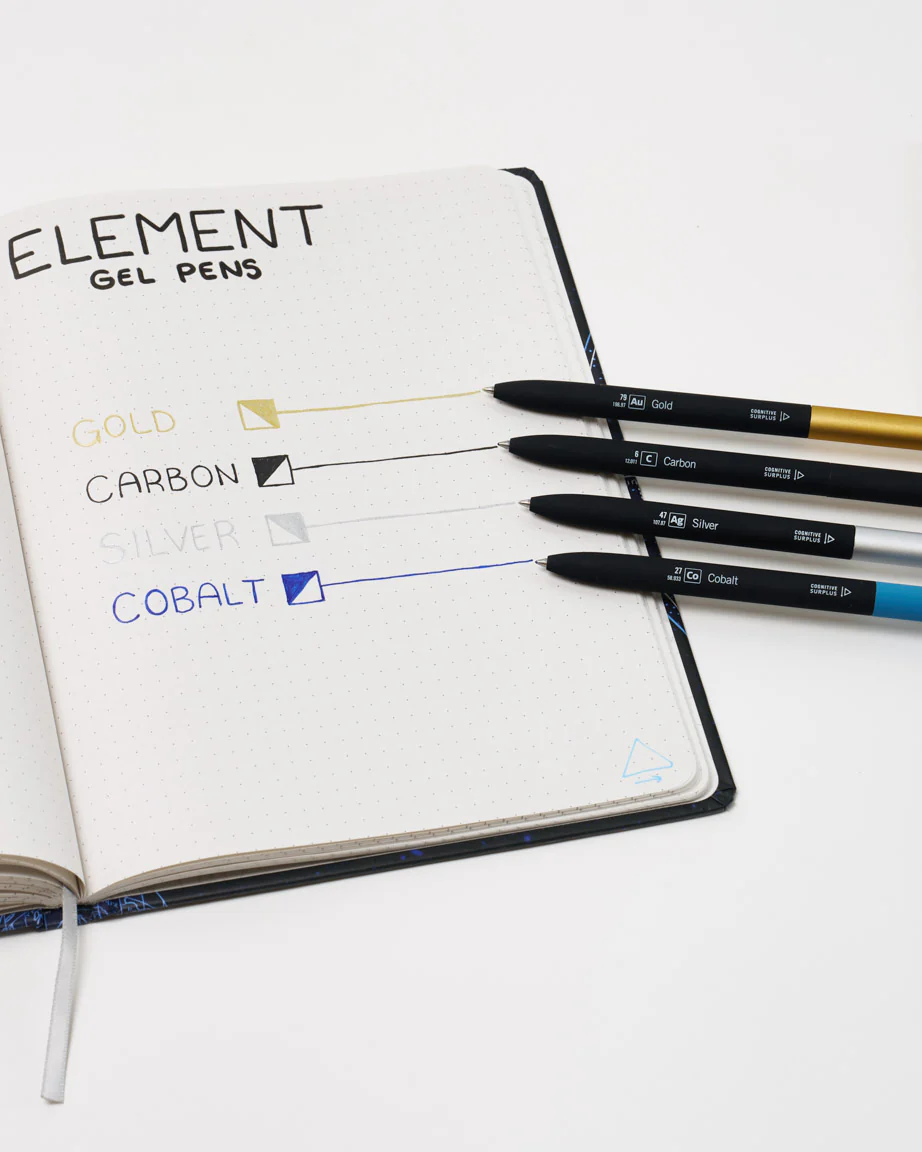 ELEMENT
GEL PENS
GOLD
CARBON
SILVER
COBALT
79
196.97
Au
Gold
COGNITIVE
SURPLUS
6
12.011
C
Carbon
COGNITIVE
SURPLUS
47
107.87
Ag
Silver
COGNITIVE
SURPLUS
27
58.933
Co
Cobalt
COGNITIVE
SURPLUS